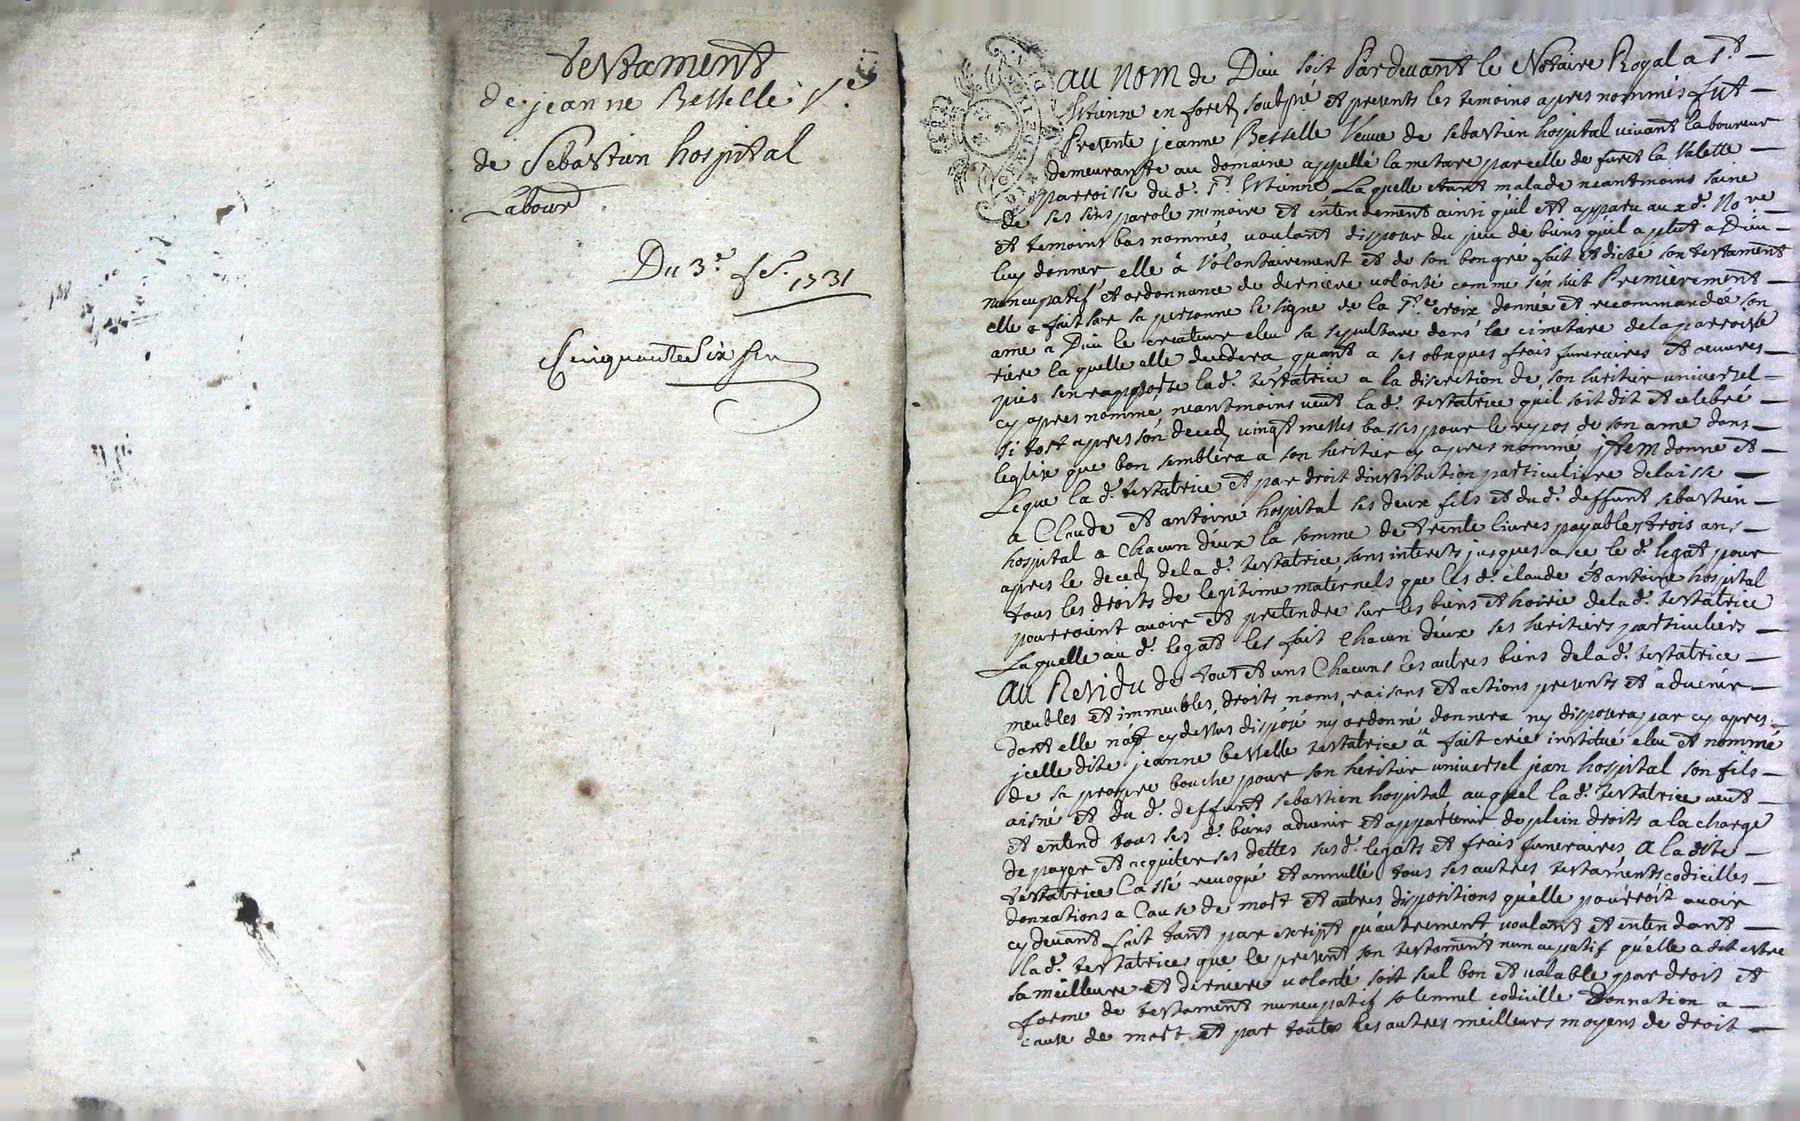 testament
de jeanne Besselle V.e
de Sebastien hospital
Labour
Du 3.e 1731
Cinquante Six
au nom de Dieu soit Pardevant le Notaire Royal a S.t
Estienne en forest soubsné et presents les temoins apres nommés fut
Presente jeanne Besselle Veuve de sebastien hospital vivant laboureur
demeurante au domaine appellé la parcelle de furet la Valette
parroisse du d. S.t Estienne Laquelle etant malade neantmoins saine
de ses sens parole memoire et entendement ainsi quil est apparu aux d. No.re
et temoins bas nommés, voulant disposer du peu de biens quil a plut a Dieu
luy donner elle à Volontairement et de son bon gré fait et dicté son testament
nuncupatif et ordonnance de derniere volonté comme sen suit Premierement
elle a fait sur sa personne le signe de la S.te croix donnée et recommandée son
ame a Dieu le createur eleu sa sepulture dans le cimetiere de la parroisse
riere la quelle elle decedera quant a ses obseques frais funeraires et oeuvres
pies sen rapporte la d. testatrice a la discretion de son heritier universel
cy apres nommé neantmoins veut la d. testatrice quil soit dit et celebré
si tost apres son decedz vingt messes basses pour le repos de son ame dans
leglise que bon semblera a son heritier cy apres nommé jtem donne et
Legue la d. testatrice et par droit dinstitution particuliere delaisse
a Claude et antoine hospital ses deux fils et du d. deffunt sebastien
hospital a Chacun deux la somme de trente livres payables trois ans
apres le decedz de la d. testatrice sans interests jusques a ce le d. legat pour
tous les droits de legitime maternels que les d. claude et antoine hospital
pourroient avoir et pretendre sur les biens et hoirie de la d. testatrice
Laquelle au d. legat les fait Chacun deux ses heritiers particuliers
au Residu de tout et uns Chacuns les autres biens de la d. testatrice
meubles et immeubles, droits, noms, raisons et actions presents et a advenir
dont elle n'a cy dessus disposé ny ordonné donnera ny disposera par cy apres
jcelle dite jeanne besselle testatrice à fait créé institué eleu et nommé
de sa propre bouche pour son heritier universel jean hospital son fils
aisné et du d. deffunt sebastien hospital auquel la d. testatrice veut
et entend tous ses d. biens advenir et appartenir de plein droits a la charge
de payer et acquiter ses dettes susd. legats et frais funeraires a la dite
testatrice Cassé revoqué et annullé tous ses autres testaments codicilles
donnations a Cause de mort et autres dispositions quelle pourroit avoir
cy devant fait tant par escript quautrement voulant et entendant
la d. testatrice que le present son testament nuncupatif quelle a dit estre
sa meilleure et derniere volonté soit seul bon et valable par droit et
forme de testament nuncupatif solemnel codicille donnation a
cause de mort et par toutes les autres meilleurs moyens de droit